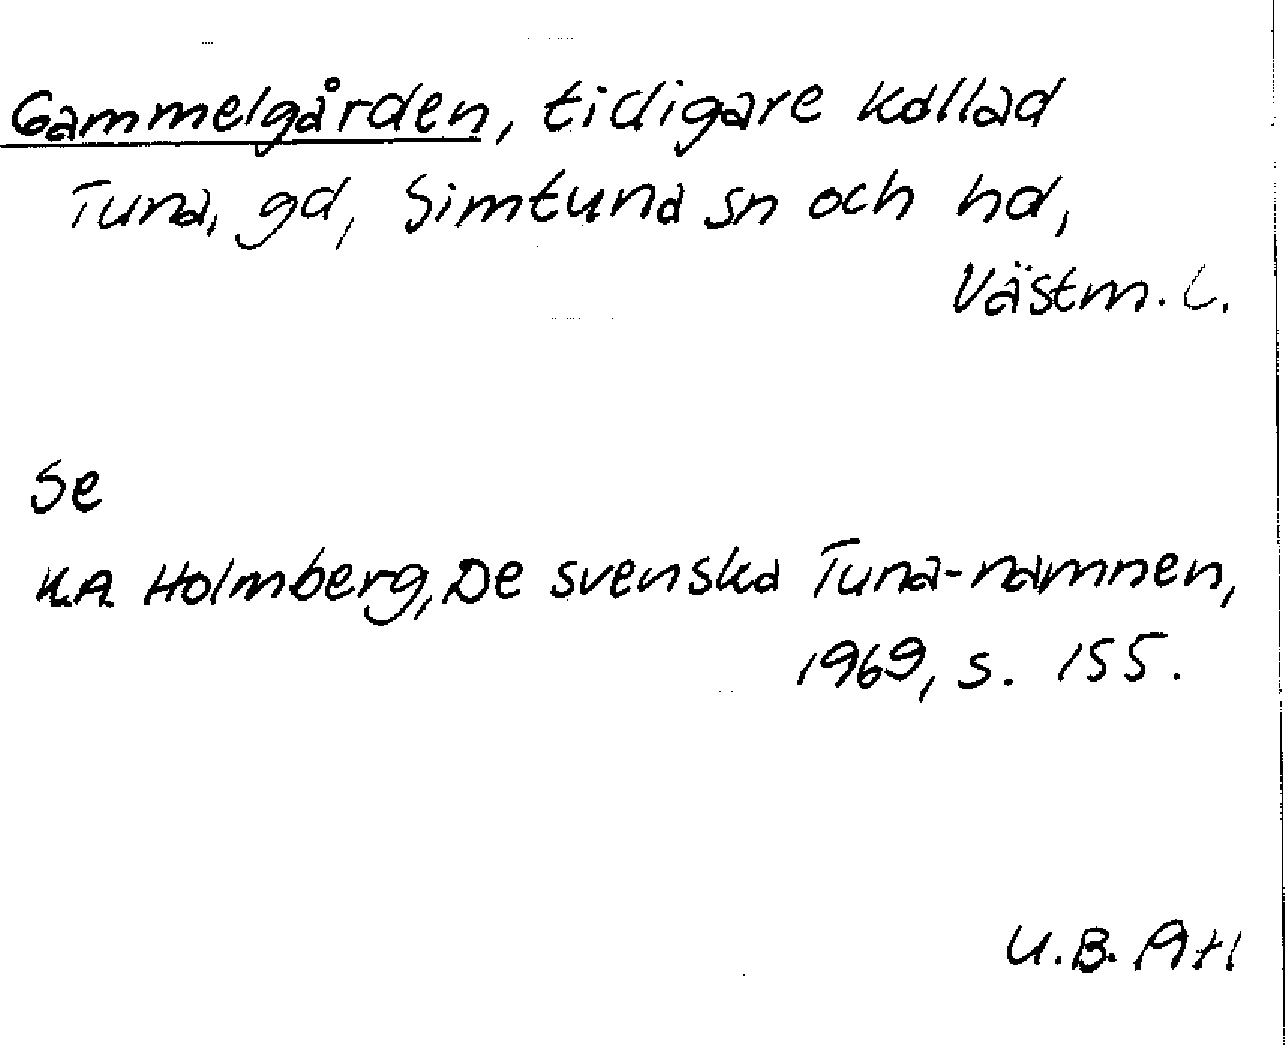 Gammelgården, tidigare kallad
Tuna, gd, Simtuna sn och hd,
Västm. l.
Se
K.A. Holmberg, De svenska Tuna-namnen,
1969, s. 155.
U.B.